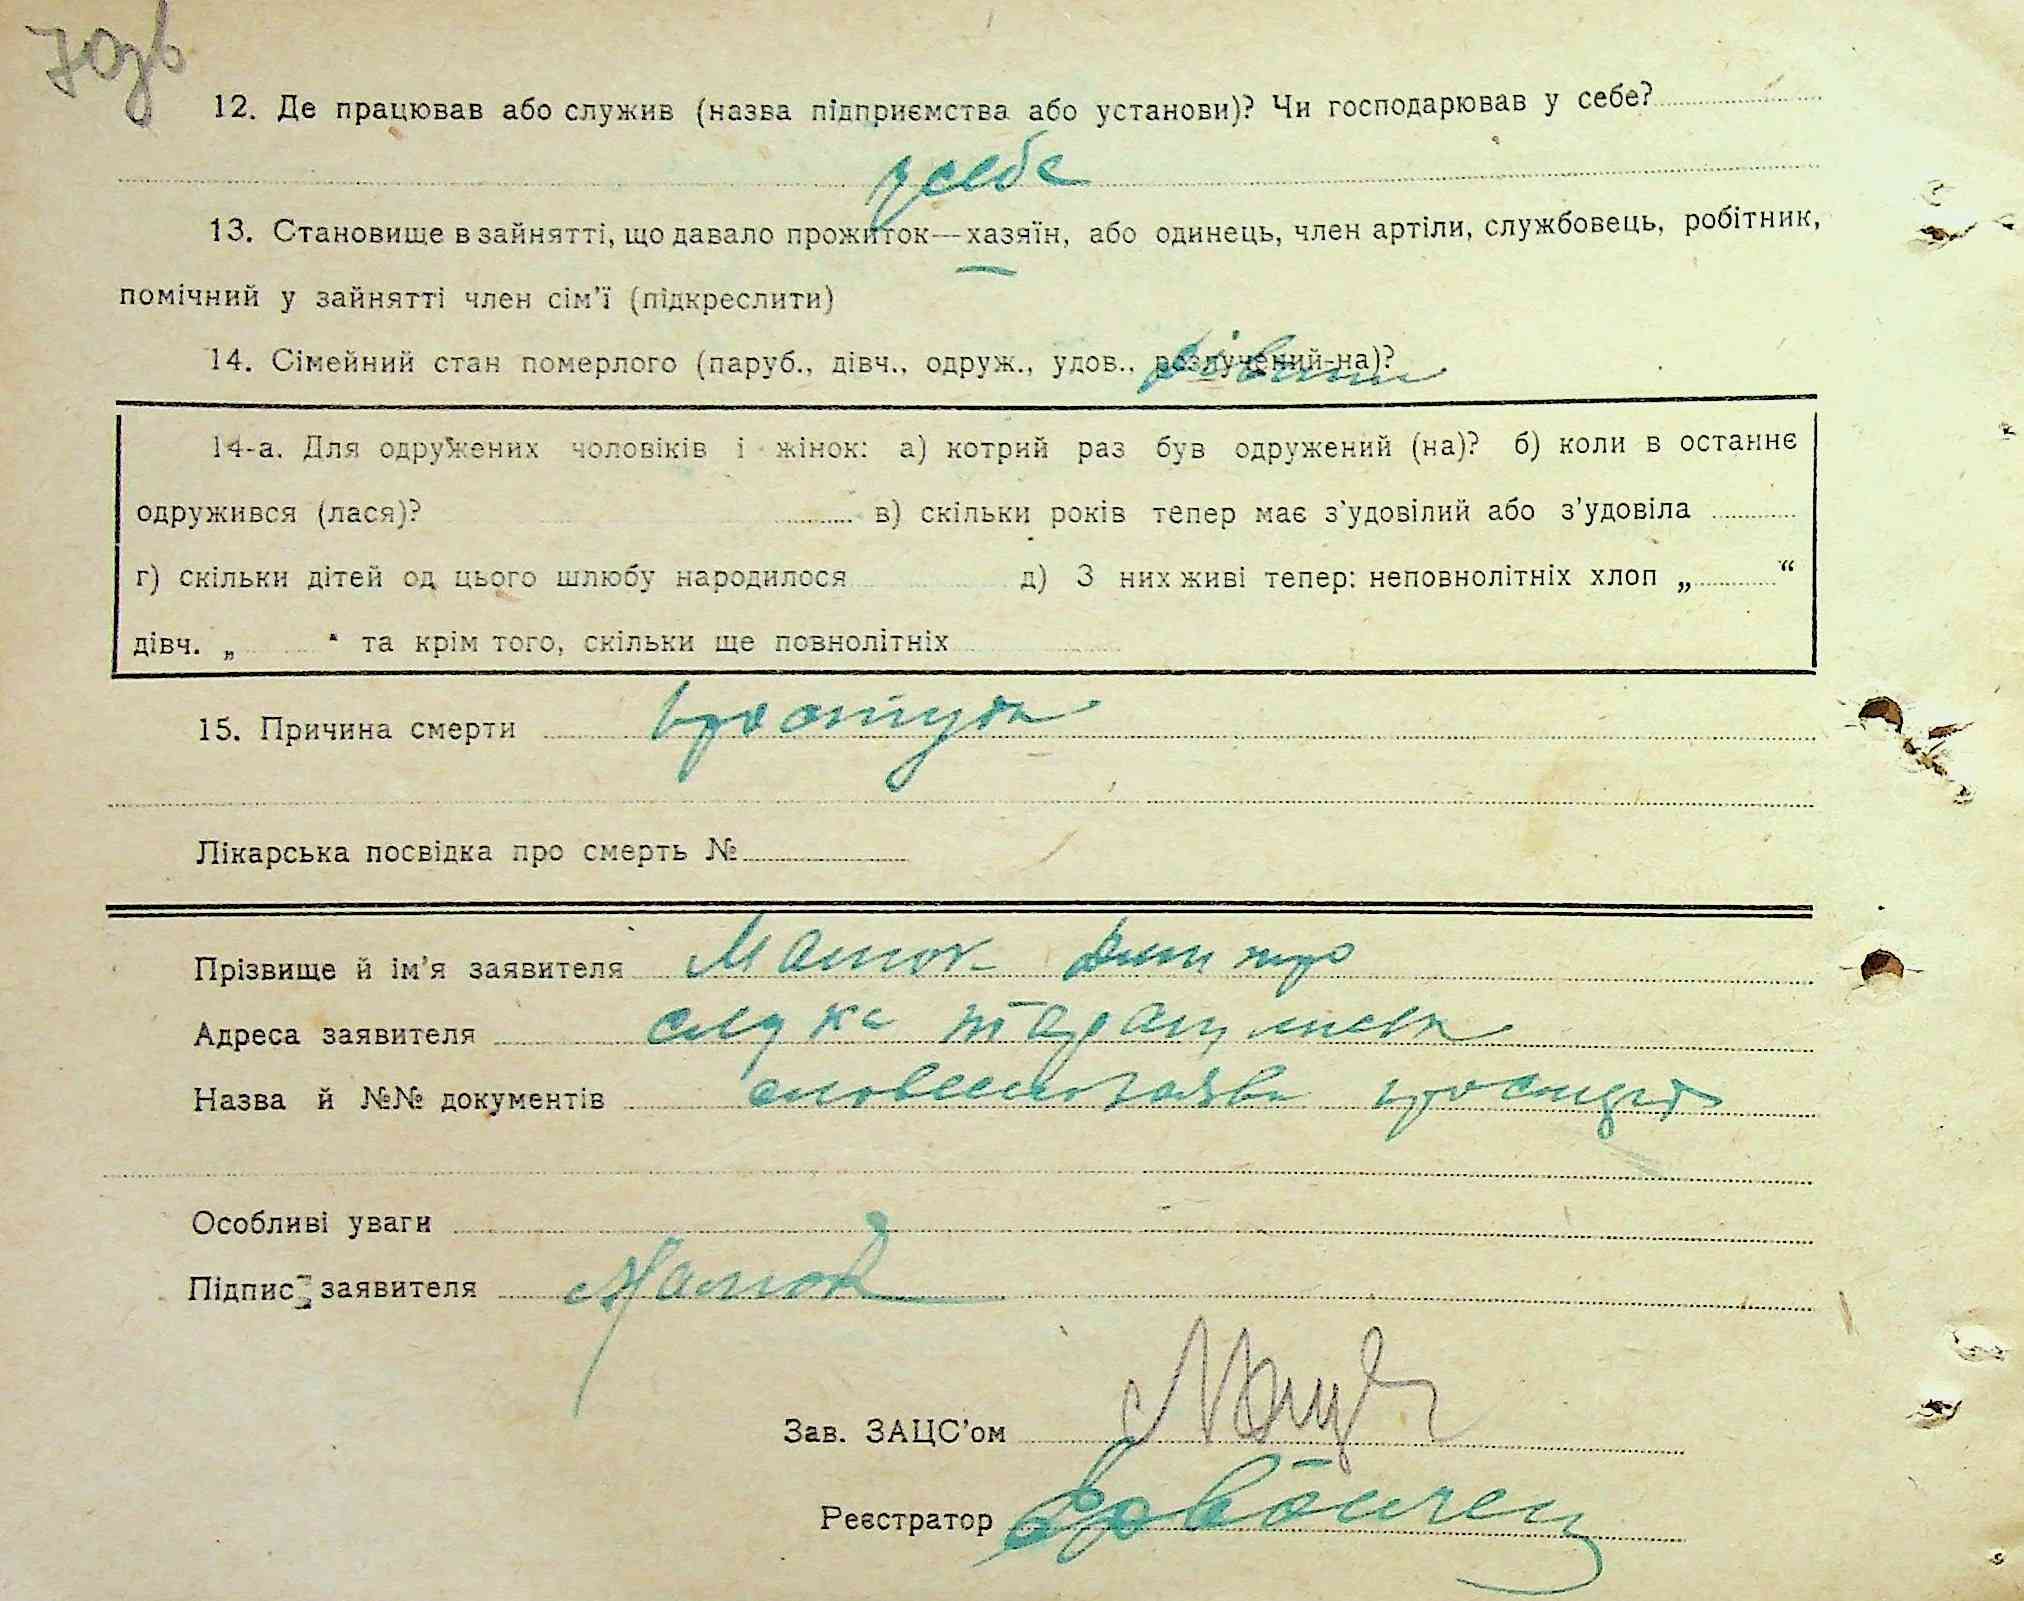 12. Де працював або служив (назва підприємства або установи)? Чи господарював у себе?
у себе
13. Становище в зайнятті, що давало прожиток—хазяїн, або одинець, член артіли, службовець, робітник,
помічний у зайнятті член сім'ї (підкреслити)
14. Сімейний стан померлого (паруб., дівч., одруж., удов., розлучений-на)?
14-а. Для одружених чоловіків і жінок: а) котрий раз був одружений (на)? б) коли в останнє
одружився (лася)? в) скільки років тепер має з'удовілий або з'удовіла
г) скільки дітей од цього шлюбу народилося д) З них живі тепер: неповнолітніх хлоп „ “
дівч. „ “ та крім того, скільки ще повнолітніх
15. Причина смерти простуда
Лікарська посвідка про смерть №
Прізвище й ім'я заявителя Дмитро
Адреса заявителя
Назва й №№ документів
Особливі уваги
Підпис заявителя
Зав. ЗАЦС'ом
Реєстратор